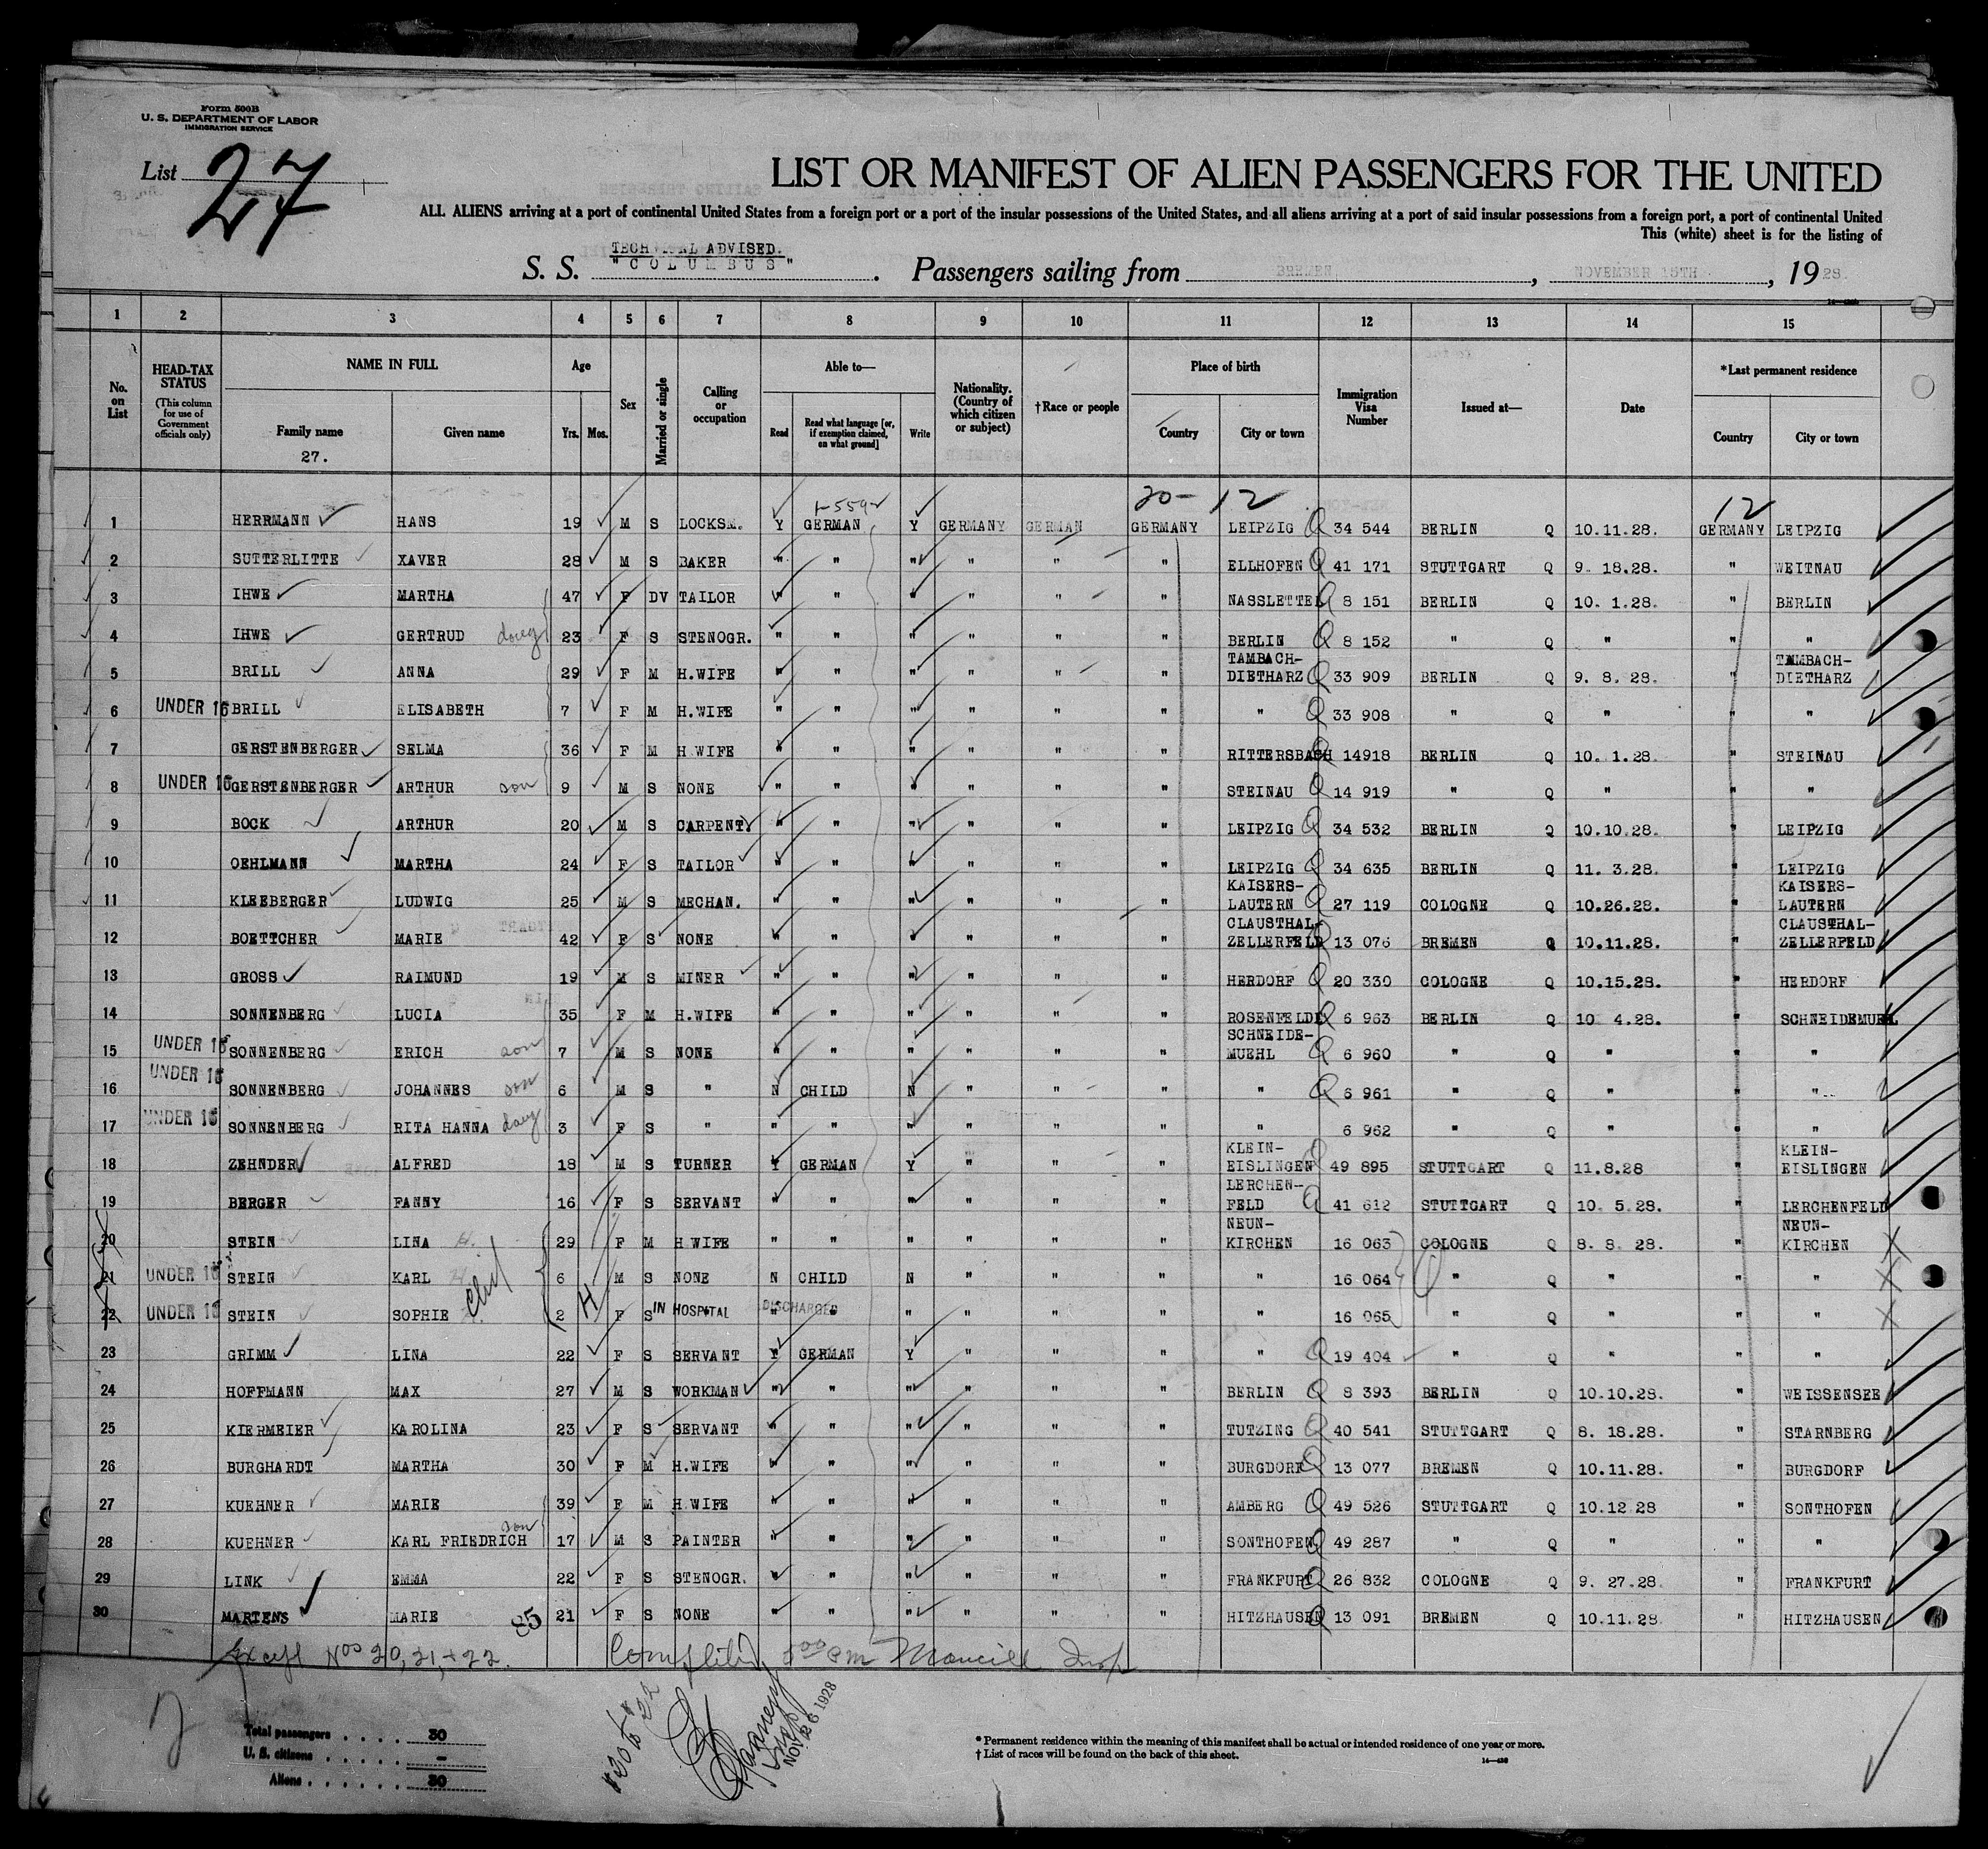 Form 500B
U. S. DEPARTMENT OF LABOR
IMMIGRATION SERVICE
List 27
LIST OR MANIFEST OF ALIEN PASSENGERS FOR THE UNITED
ALL ALIENS arriving at a port of continental United States from a foreign port or a port of the insular possessions of the United States, and all aliens arriving at a port of said insular possessions from a foreign port, a port of continental United
This (white) sheet is for the listing of
ADVISED.
S. S. "COLUMBUS". Passengers sailing from BREMEN, NOVEMBER 15TH, 1928.
1 2 3 4 5 6 7 8 9 10 11 12 13 14 15
No. on List
HEAD-TAX STATUS (This column for use of Government officials only)
NAME IN FULL
Family name
27.
Given name
Age
Yrs. Mos.
Sex
Married or single
Calling or occupation
Able to—
Read
Read what language [or, if exemption claimed, on what ground]
Write
Nationality. (Country of which citizen or subject)
†Race or people
Place of birth
Country
City or town
Immigration Visa Number
Issued at—
Date
*Last permanent residence
Country
City or town
20- 12 12
1 HERRMANN HANS 19 M S LOCKSM. Y GERMAN Y GERMANY GERMAN GERMANY LEIPZIG Q 34 544 BERLIN Q 10.11.28. GERMANY LEIPZIG
2 SUTTERLITTE XAVER 28 M S BAKER " " " " " " ELLHOFEN Q 41 171 STUTTGART Q 9. 18.28. " WEITNAU
3 IHWE MARTHA 47 F DV TAILOR " " " " " " Q 8 151 BERLIN Q 10. 1.28. " BERLIN
4 IHWE GERTRUD daug 23 F S STENOGR. " " " " " " BERLIN Q 8 152 " Q " " "
5 BRILL ANNA 29 F M H.WIFE " " " " " " TAMBACH-DIETHARZ Q 33 909 BERLIN Q 9. 8. 28. " TAMBACH-DIETHARZ
6 UNDER 16 BRILL ELISABETH 7 F M H.WIFE " " " " " " " Q 33 908 " Q " " "
7 GERSTENBERGER SELMA 36 F M H WIFE " " " " " " RITTERSBACH 14918 BERLIN Q 10. 1.28. " STEINAU
8 UNDER 16 GERSTENBERGER ARTHUR son 9 M S NONE " " " " " " STEINAU Q 14 919 " Q " " "
9 BOCK ARTHUR 20 M S CARPENT. " " " " " " LEIPZIG Q 34 532 BERLIN Q 10.10.28. " LEIPZIG
10 OEHLMANN MARTHA 24 F S TAILOR " " " " " " LEIPZIG Q 34 635 BERLIN Q 11. 3.28. " LEIPZIG
11 KLEEBERGER LUDWIG 25 M S MECHAN. " " " " " " KAISERS-LAUTERN Q 27 119 COLOGNE Q 10.26.28. " KAISERS-LAUTERN
12 BOETTCHER MARIE 42 F S NONE " " " " " " CLAUSTHAL-ZELLERFELD 13 076 BREMEN Q 10.11.28. " CLAUSTHAL-ZELLERFELD
13 GROSS RAIMUND 19 M S MINER " " " " " " HERDORF Q 20 330 COLOGNE Q 10.15.28. " HERDORF
14 SONNENBERG LUCIA 35 F M H.WIFE " " " " " " ROSENFELDE Q 6 963 BERLIN Q 10 4.28. " SCHNEIDEMUEHL
15 UNDER 16 SONNENBERG ERICH son 7 M S NONE " " " " " " SCHNEIDE-MUEHL Q 6 960 " Q " " "
16 UNDER 16 SONNENBERG JOHANNES son 6 M S " N CHILD N " " " " Q 6 961 " Q " " "
17 UNDER 16 SONNENBERG RITA HANNA daug 3 F S " " " " " " " " 6 962 " Q " " "
18 ZEHNDER ALFRED 18 M S TURNER Y GERMAN Y " " " KLEIN-EISLINGEN Q 49 895 STUTTGART Q 11.8.28 " KLEIN-EISLINGEN
19 BERGER FANNY 16 F S SERVANT " " " " " " LERCHEN-FELD Q 41 612 STUTTGART Q 10. 5.28. " LERCHENFELD
20 STEIN LINA H. 29 F M H WIFE " " " " " " NEUN-KIRCHEN 16 063 COLOGNE Q 8. 8. 28. " NEUN-KIRCHEN X
21 UNDER 16 STEIN KARL 6 M S NONE N CHILD N " " " " 16 064 " Q " " " X
22 UNDER 16 STEIN SOPHIE 2 H F S IN HOSPITAL DISCHARGED " " " " " 16 065 " Q " " " X
23 GRIMM LINA 22 F S SERVANT Y GERMAN Y " " " " Q 19 404 " Q " " "
24 HOFFMANN MAX 27 M S WORKMAN " " " " " " BERLIN Q 8 393 BERLIN Q 10.10.28. " WEISSENSEE
25 KIERMEIER KAROLINA 23 F S SERVANT " " " " " " TUTZING Q 40 541 STUTTGART Q 8. 18.28. " STARNBERG
26 BURGHARDT MARTHA 30 F M H.WIFE " " " " " " BURGDORF Q 13 077 BREMEN Q 10.11.28. " BURGDORF
27 KUEHNER MARIE 39 F M H WIFE " " " " " " AMBERG Q 49 526 STUTTGART Q 10.12 28 " SONTHOFEN
28 KUEHNER KARL FRIEDRICH son 17 M S PAINTER " " " " " " SONTHOFEN Q 49 287 " Q " " "
29 LINK EMMA 22 F S STENOGR. " " " " " " FRANKFURT Q 26 832 COLOGNE Q 9. 27.28. " FRANKFURT
30 MARTENS MARIE 85 21 F S NONE " " " " " " HITZHAUSEN Q 13 091 BREMEN Q 10.11.28. " HITZHAUSEN
Except Nos 20, 21, + 22. Completed 5 00 pm Insp
Total passengers 30
U. S. citizens -
Aliens 30
NOV 26 1928
* Permanent residence within the meaning of this manifest shall be actual or intended residence of one year or more.
† List of races will be found on the back of this sheet.